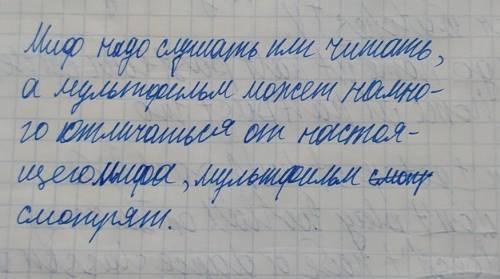 Миф надо слушать или читать,
а мультфильм может намно-
го отличаться от настоя-
щего мифа, мультфильм смотр
смотрят.